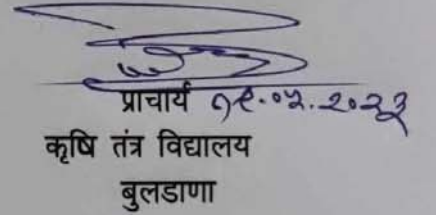 प्राचार्य १९.०५.२०२३
कृषि तंत्र विद्यालय
बुलडाणा